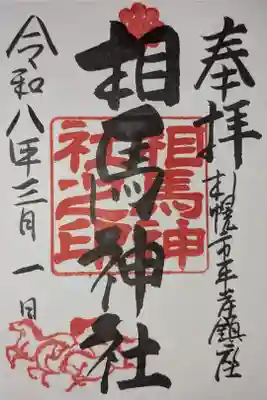 奉拝
札幌市平岸鎮座
相馬神社
相馬神社之印
令和八年三月一日